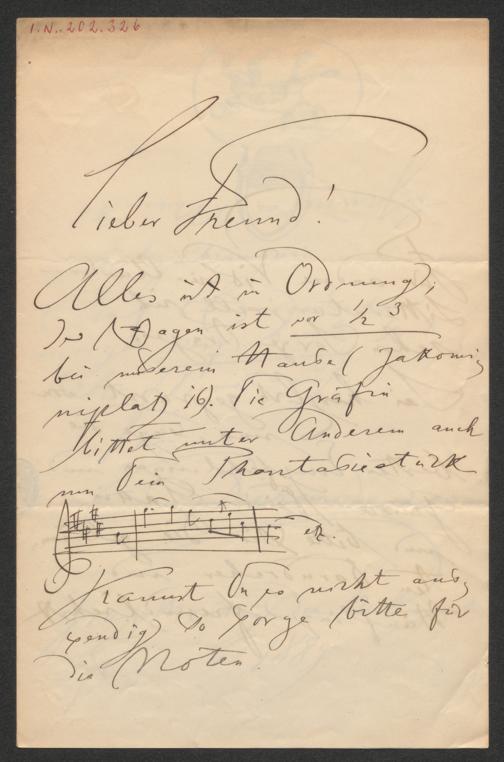 I.N. 202.326
Lieber Freund!
Alles ist in Ordnung;
der Wagen ist vor ½ 3
bei unserem Hause (Jakomi,
niplatz 16). Die Gräfin
bittet unter Anderem auch
um Dein Phantasiestück
etc.
Kannst Du es nicht aus,
wendig, so sorge bitte für
die Noten.